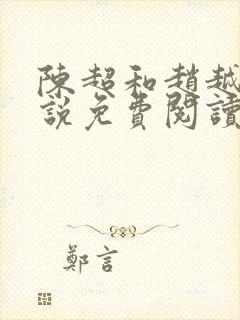 陳超和趙越
說免費閱讀
鄭言